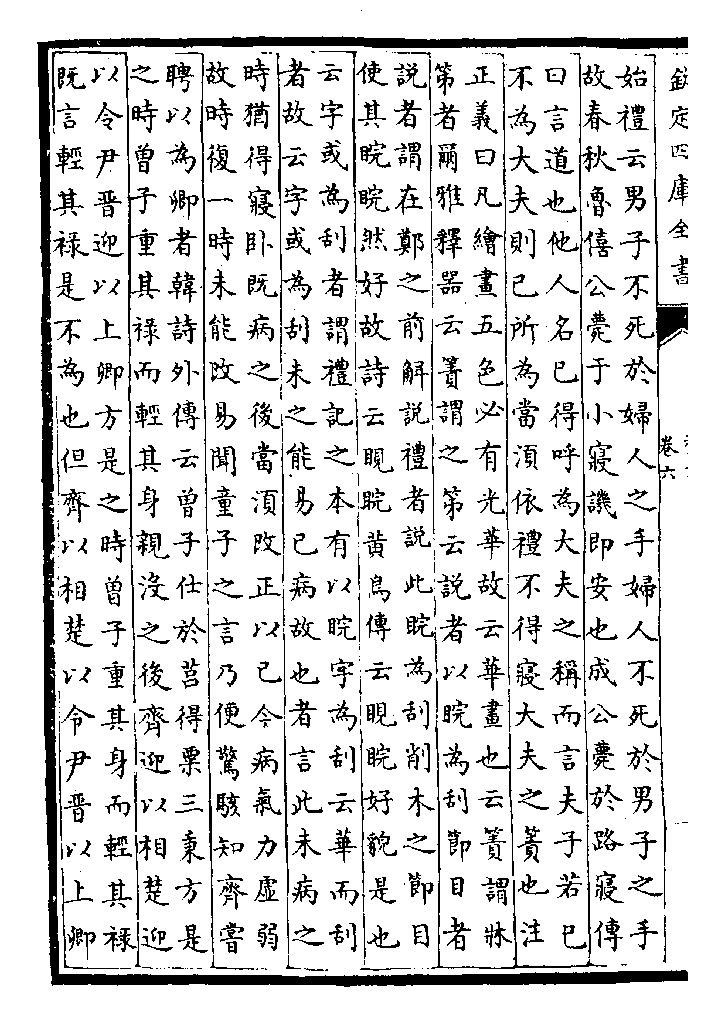 欽定四庫全書
卷六
始禮云男子不死於婦人之手婦人不死於男子之手
故春秋魯僖公薨于小寢譏即安也成公薨於路寢傳
曰言道也他人名已得呼為大夫之稱而言夫子若已
不為大夫則已所為當須依禮不得寢大夫之簀也注
正義曰凡繪畫五色必有光華故云華畫也云簀謂牀
第者爾雅釋器云簀謂之第云說者以睆為刮節目者
說者謂在鄭之前解說禮者說此睆為刮削木之節目
使其睆睆然好故詩云睍睆黄鳥傳云睍睆好貌是也
云字或為刮者謂禮記之本有以睆字為刮云華而刮
者故云字或為刮未之能易已病故也者言此未病之
時猶得寢卧既病之後當須改正以已今病氣力虛弱
故時復一時未能改易聞童子之言乃便驚駭知齊嘗
聘以為卿者韓詩外傳云曾子仕於莒得粟三秉方是
之時曾子重其禄而輕其身親沒之後齊迎以相楚迎
以令尹晋迎以上卿方是之時曾子重其身而輕其禄
既言輕其禄是不為也但齊以相楚以令尹晋以上卿